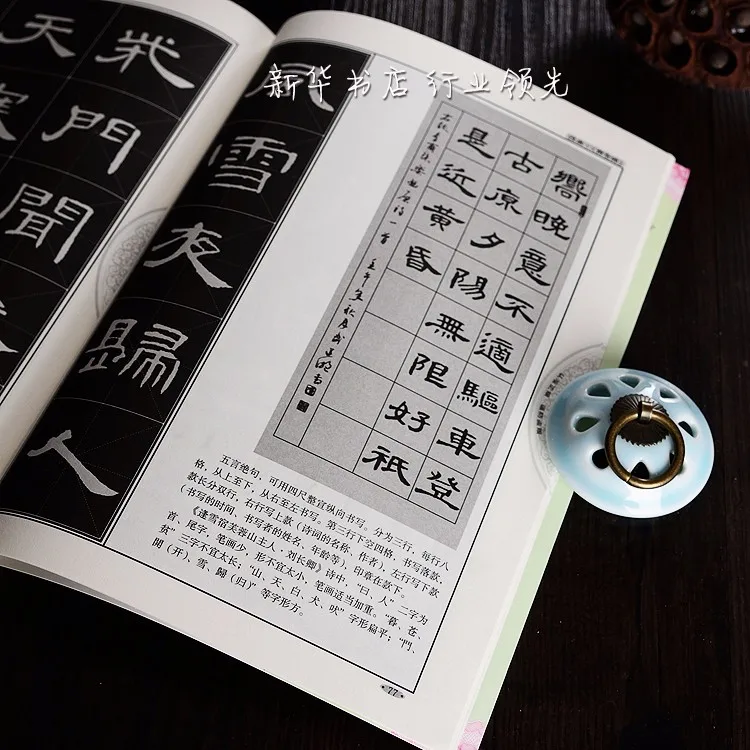 新华书店 行业领先
雪夜歸人
柴門聞
天寒
嚮晚意不適驅車登
古原夕陽無限好祇
是近黄昏
五言绝句，可用四尺整宣纵向书写。分为三行，每行八
格，从上至下，从右至左书写。第三行下空四格，书写落款，
款长分双行，右行写上款（诗词的名称、作者），左行写下款
（书写的时间、书写者的姓名、年龄等），印章在款下。
《逢雪宿芙蓉山主人·刘长卿》诗中，“日、人”二字为
首、尾字，笔画少，形不宜太小，笔画适当加重。“暮、苍、
贫”三字不宜太长；“山、天、白、犬、吠”字形扁平；“門、
開（开）、雪、歸（归）”等字形方。
·77·